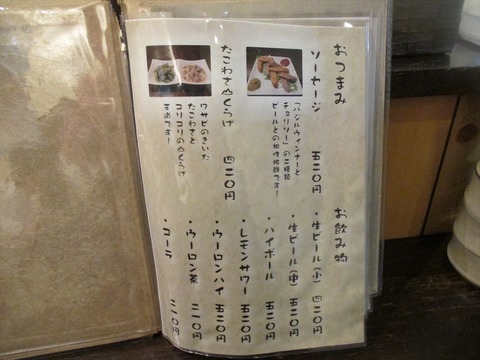 おつまみ
ソーセージ 五二〇円
「バジルウィンナーと
チョリソー」の二種類
ビールとの相性抜群です!
たこわさ&くらげ 四二〇円
ワサビのきいた
たこわさと
コリコリのくらげ
お飲み物
・生ビール(小) 四二〇円
・生ビール(中) 五二〇円
・ハイボール 五二〇円
・レモンサワー 五二〇円
・ウーロンハイ 五二〇円
・ウーロン茶 二一〇円
・コーラ 二一〇円